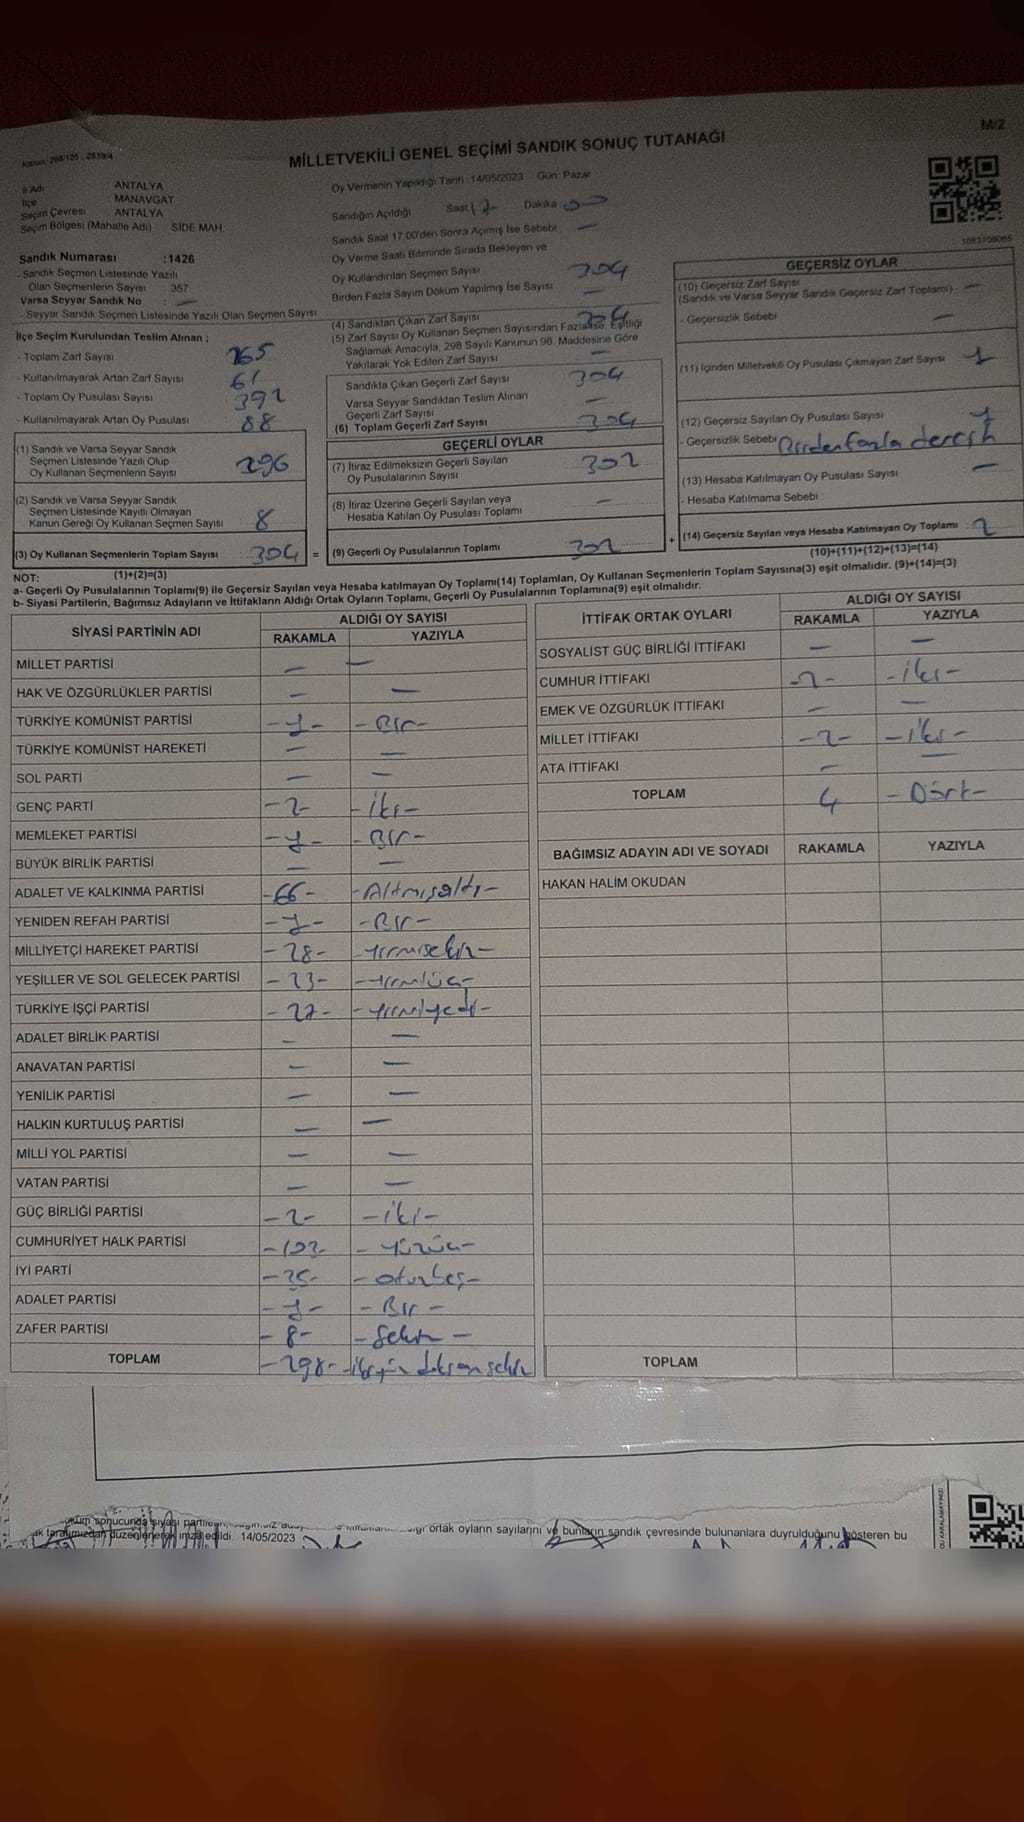 M/2
MİLLETVEKİLİ GENEL SEÇİMİ SANDIK SONUÇ TUTANAĞI
İl Adı : ANTALYA
İlçe : MANAVGAT
Seçim Çevresi : ANTALYA
Seçim Bölgesi (Mahalle Adı) SİDE MAH.
Sandık Numarası :1426
- Sandık Seçmen Listesinde Yazılı
Olan Seçmenlerin Sayısı 357
Varsa Seyyar Sandık No : —
- Seyyar Sandık Seçmen Listesinde Yazılı Olan Seçmen Sayısı
Oy Vermenin Yapıldığı Tarih :14/05/2023 Gün: Pazar
Sandığın Açıldığı Saat 17 Dakika
Sandık Saat 17.00'den Sonra Açımış İse Sebebi —
Oy Verme Saati Bitiminde Sırada Bekleyen ve
Oy Kullandırılan Seçmen Sayısı 304
Birden Fazla Sayım Döküm Yapılmış İse Sayısı —
İlçe Seçim Kurulundan Teslim Alınan ;
- Toplam Zarf Sayısı 365
- Kullanılmayarak Artan Zarf Sayısı 61
- Toplam Oy Pusulası Sayısı 392
- Kullanılmayarak Artan Oy Pusulası 88
(1) Sandık ve Varsa Seyyar Sandık
Seçmen Listesinde Yazılı Olup
Oy Kullanan Seçmenlerin Sayısı 296
(2) Sandık ve Varsa Seyyar Sandık
Seçmen Listesinde Kayıtlı Olmayan
Kanun Gereği Oy Kullanan Seçmen Sayısı 8
(3) Oy Kullanan Seçmenlerin Toplam Sayısı : 304 =
(1)+(2)=(3)
(4) Sandıktan Çıkan Zarf Sayısı 304
(5) Zarf Sayısı Oy Kullanan Seçmen Sayısından Fazla ise, Eşitliği
Sağlamak Amacıyla, 298 Sayılı Kanunun 98. Maddesine Göre
Yakılarak Yok Edilen Zarf Sayısı —
Sandıkta Çıkan Geçerli Zarf Sayısı 304
Varsa Seyyar Sandıktan Teslim Alınan
Geçerli Zarf Sayısı —
(6) Toplam Geçerli Zarf Sayısı 304
GEÇERLİ OYLAR
(7) İtiraz Edilmeksizin Geçerli Sayılan
Oy Pusulalarının Sayısı 302
(8) İtiraz Üzerine Geçerli Sayılan veya
Hesaba Katılan Oy Pusulası Toplamı —
(9) Geçerli Oy Pusulalarının Toplamı 302 +
GEÇERSİZ OYLAR
(10) Geçersiz Zarf Sayısı
(Sandık ve Varsa Seyyar Sandık Geçersiz Zarf Toplamı) —
- Geçersizlik Sebebi —
(11) İçinden Milletvekili Oy Pusulası Çıkmayan Zarf Sayısı 1
(12) Geçersiz Sayılan Oy Pusulası Sayısı 1
- Geçersizlik Sebebi Birden fazla tercih
(13) Hesaba Katılmayan Oy Pusulası Sayısı —
- Hesaba Katılmama Sebebi :
(14) Geçersiz Sayılan veya Hesaba Katılmayan Oy Toplamı : 2
(10)+(11)+(12)+(13)=(14)
NOT:
a- Geçerli Oy Pusulalarının Toplamı(9) ile Geçersiz Sayılan veya Hesaba katılmayan Oy Toplamı(14) Toplamları, Oy Kullanan Seçmenlerin Toplam Sayısına(3) eşit olmalıdır. (9)+(14)=(3)
b- Siyasi Partilerin, Bağımsız Adayların ve İttifakların Aldığı Ortak Oyların Toplamı, Geçerli Oy Pusulalarının Toplamına(9) eşit olmalıdır.
SİYASİ PARTİNİN ADI ALDIĞI OY SAYISI
RAKAMLA YAZIYLA
MİLLET PARTİSİ — —
HAK VE ÖZGÜRLÜKLER PARTİSİ — —
TÜRKİYE KOMÜNİST PARTİSİ -1- -Bir-
TÜRKİYE KOMÜNİST HAREKETİ — —
SOL PARTİ — —
GENÇ PARTİ -2- -iki-
MEMLEKET PARTİSİ -1- -Bir-
BÜYÜK BİRLİK PARTİSİ — —
ADALET VE KALKINMA PARTİSİ -66- -Altmışaltı-
YENİDEN REFAH PARTİSİ -1- -Bir-
MİLLİYETÇİ HAREKET PARTİSİ -28- -Yirmisekiz-
YEŞİLLER VE SOL GELECEK PARTİSİ -23- -Yirmiüç-
TÜRKİYE İŞÇİ PARTİSİ -27- -Yirmiyedi-
ADALET BİRLİK PARTİSİ — —
ANAVATAN PARTİSİ — —
YENİLİK PARTİSİ — —
HALKIN KURTULUŞ PARTİSİ — —
MİLLİ YOL PARTİSİ — —
VATAN PARTİSİ — —
GÜÇ BİRLİĞİ PARTİSİ -2- -iki-
CUMHURİYET HALK PARTİSİ -103- -yüzüç-
İYİ PARTİ -35- -otuzbeş-
ADALET PARTİSİ -1- -Bir-
ZAFER PARTİSİ -8- -Sekiz-
TOPLAM -298- -ikiyüz doksan sekiz
İTTİFAK ORTAK OYLARI ALDIĞI OY SAYISI
RAKAMLA YAZIYLA
SOSYALİST GÜÇ BİRLİĞİ İTTİFAKI — —
CUMHUR İTTİFAKI -2- -iki-
EMEK VE ÖZGÜRLÜK İTTİFAKI — —
MİLLET İTTİFAKI -2- -iki-
ATA İTTİFAKI — —
TOPLAM 4 -Dört-
BAĞIMSIZ ADAYIN ADI VE SOYADI RAKAMLA YAZIYLA
HAKAN HALİM OKUDAN
TOPLAM
sonucunda siyasi
ortak oyların sayılarını ve bunların sandık çevresinde bulunanlara duyrulduğunu gösteren bu
tarafımızdan düzenlenerek imza edildi. 14/05/2023